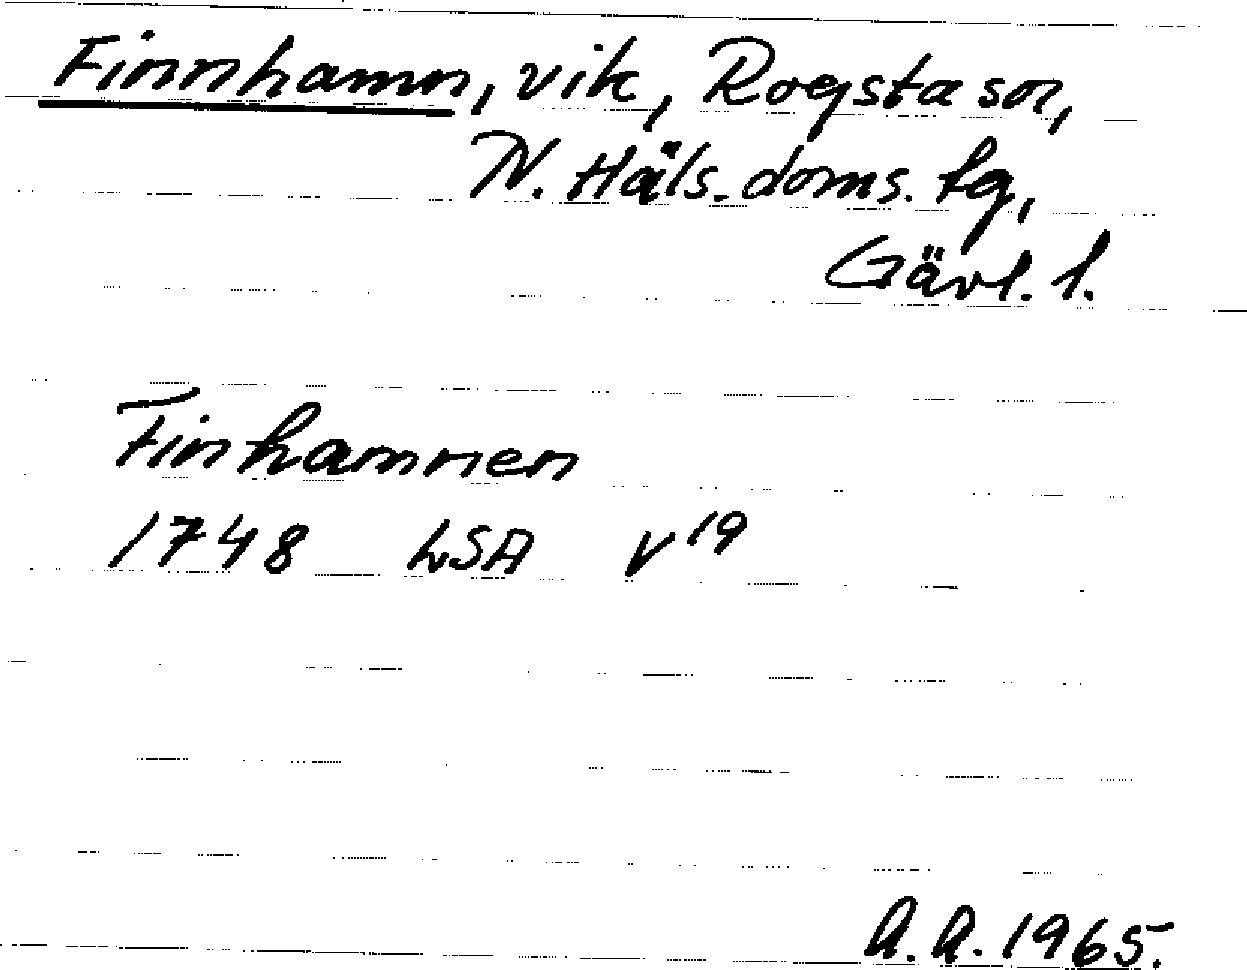 Finnhamn, vik, Rogsta sn,
N. Häls. doms. fg,
Gävl. l.
Finhamnen
1748 LSA V19
A.A. 1965.